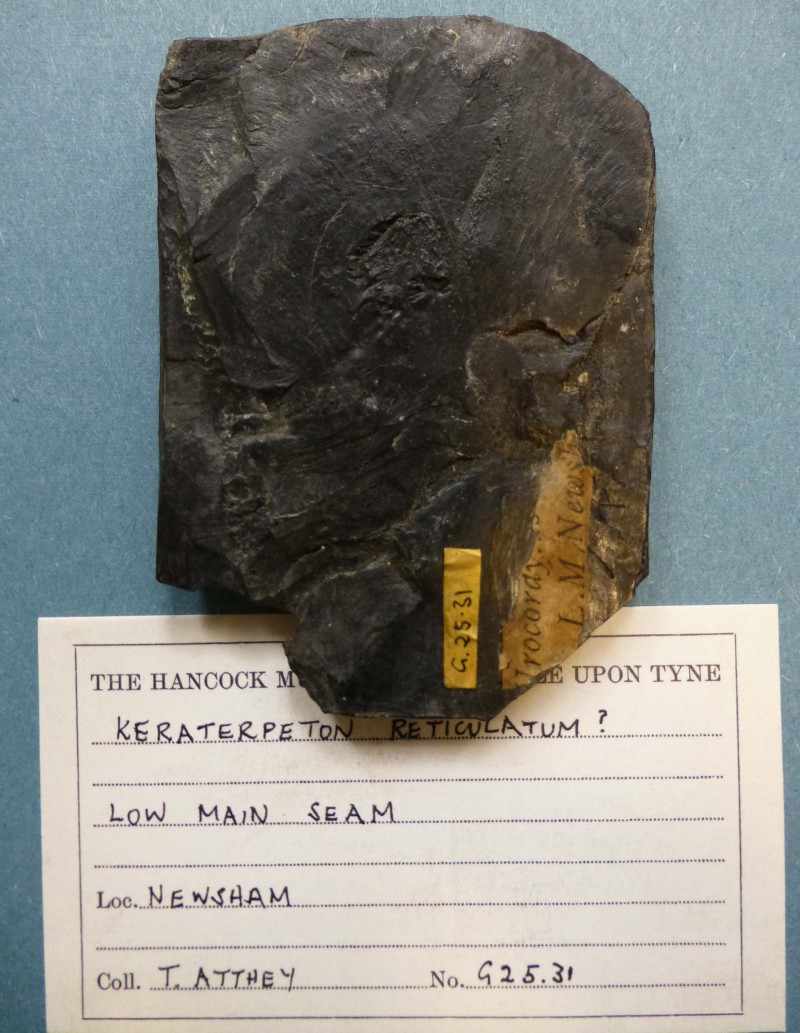 G.25.31
Urocordy
L.M. News
THE HANCOCK M LE UPON TYNE
KERATERPETON RETICULATUM?
LOW MAIN SEAM
Loc. NEWSHAM
Coll. T. ATTHEY No. G25.31